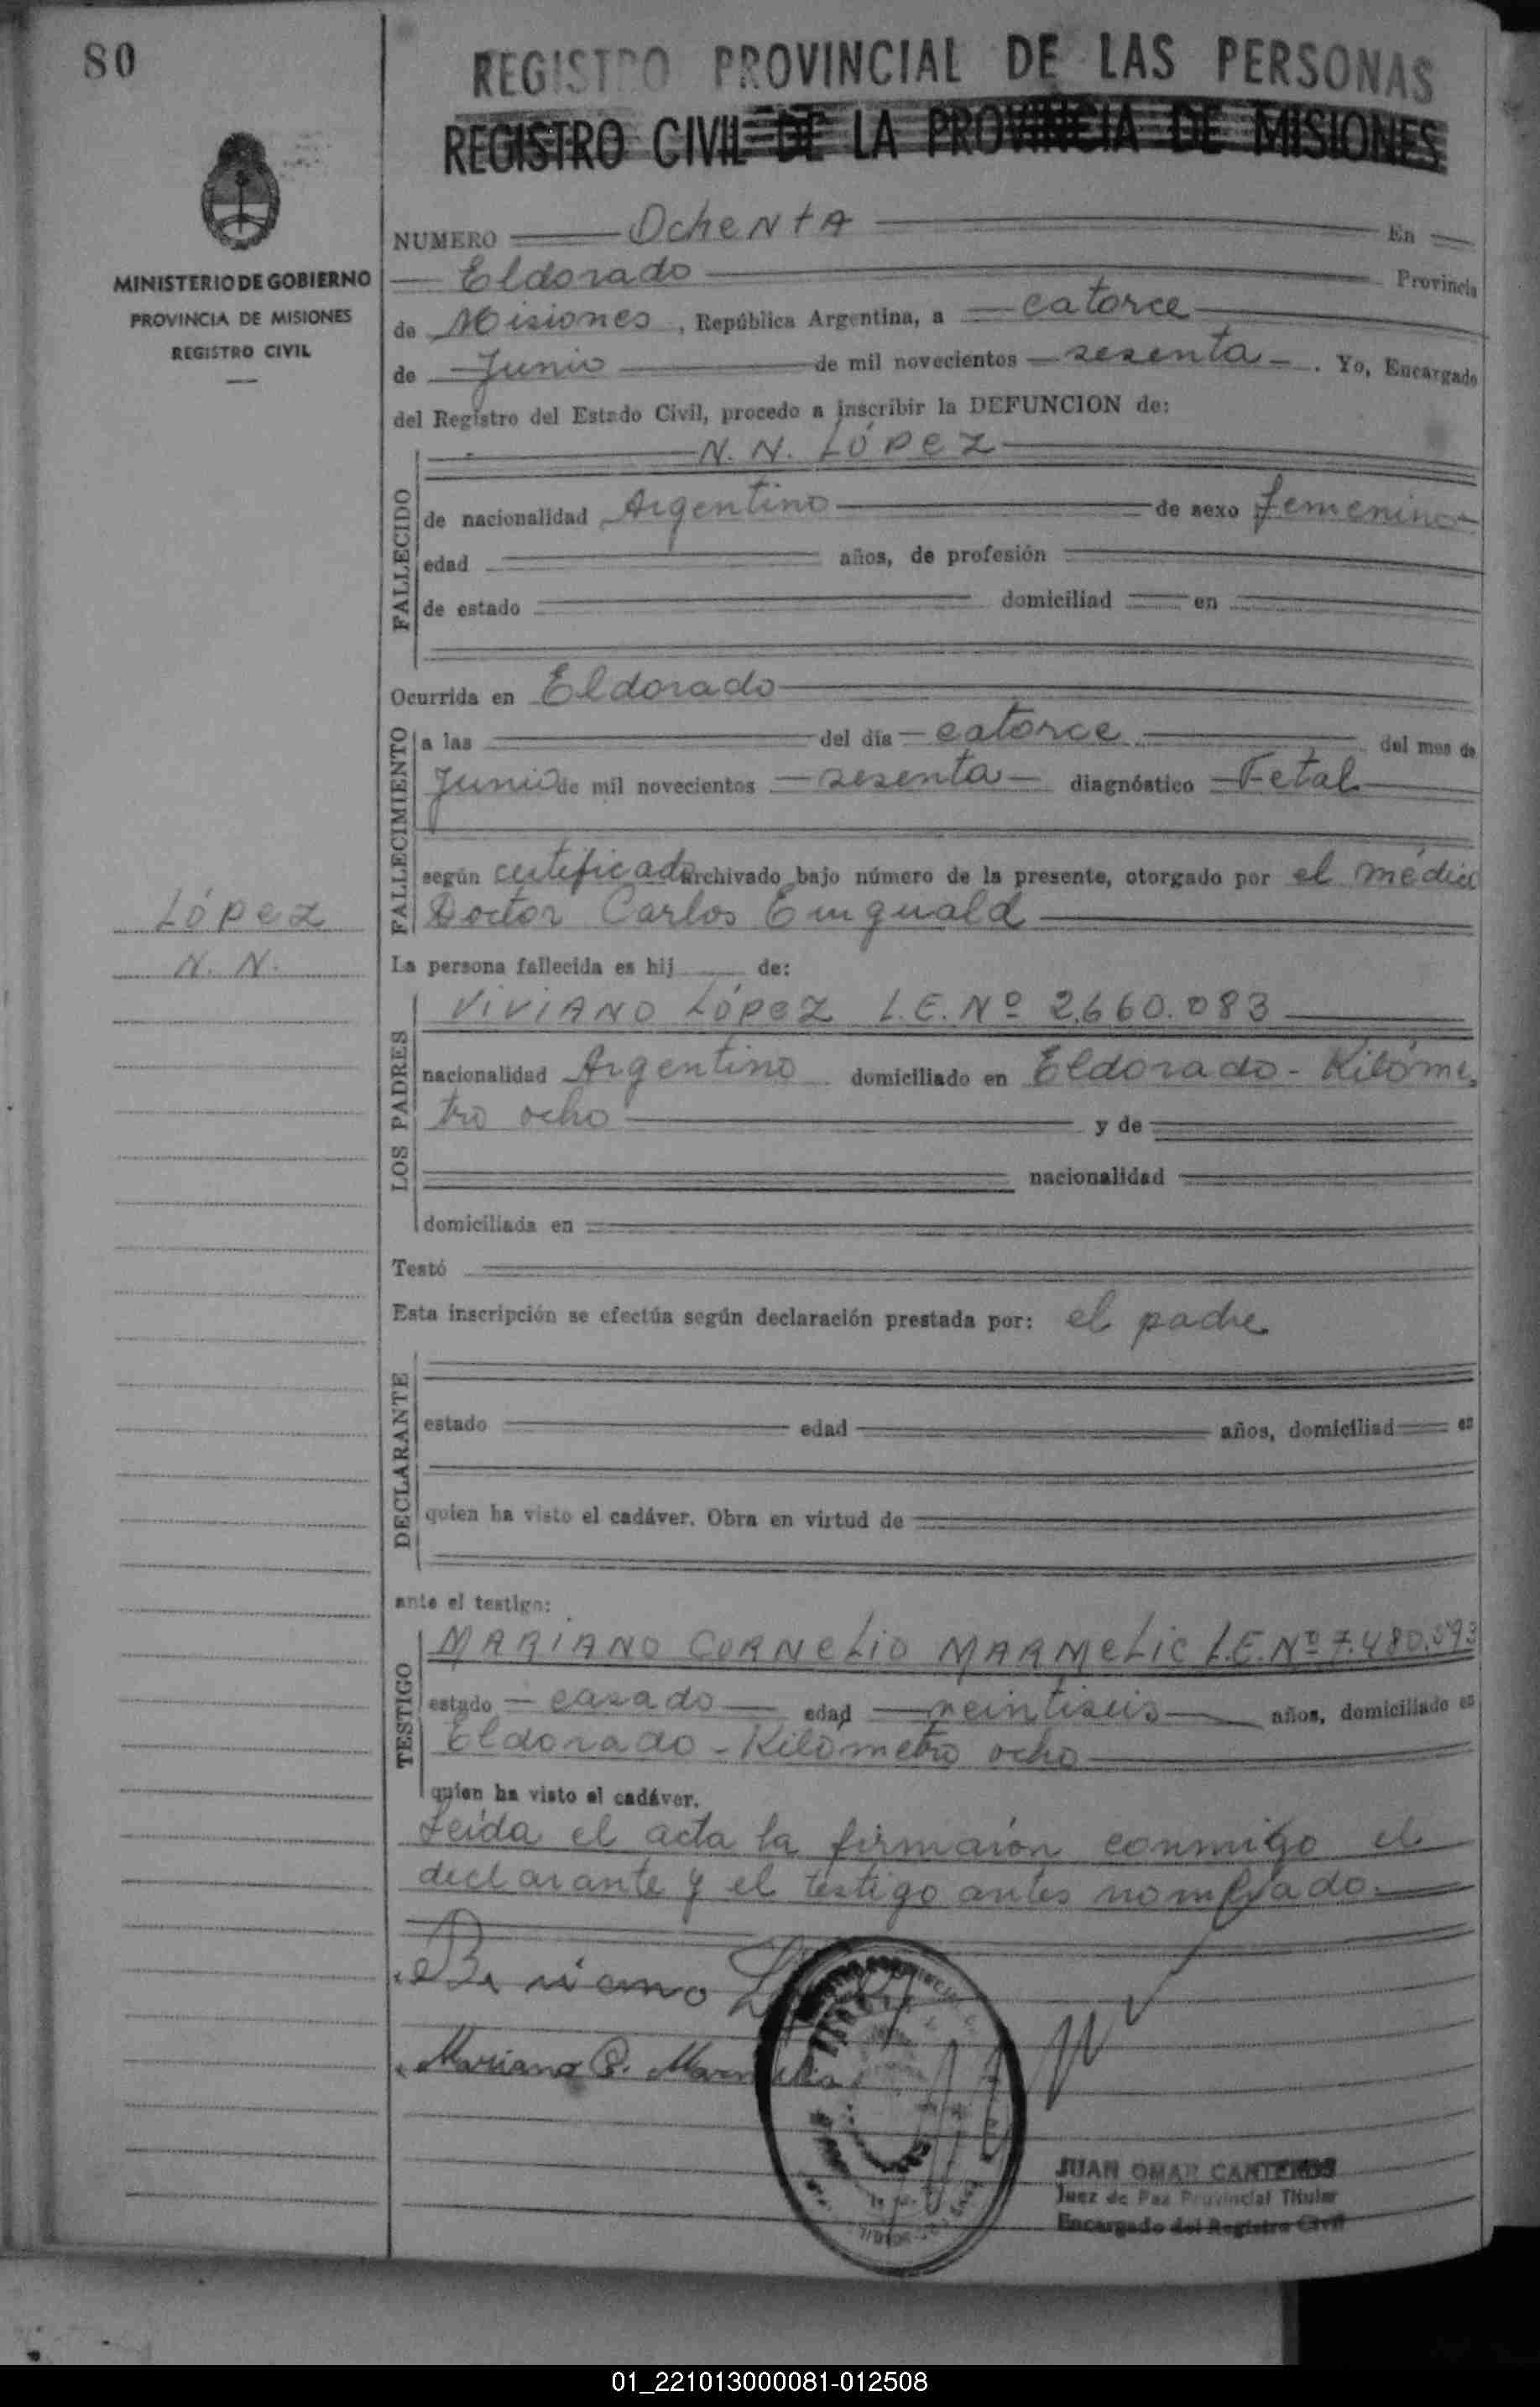 80
REGISTRO PROVINCIAL DE LAS PERSONAS
REGISTRO CIVIL DE LA PROVINCIA DE MISIONES
MINISTERIO DE GOBIERNO
PROVINCIA DE MISIONES
REGISTRO CIVIL
NUMERO Ochenta En
Eldorado Provincia
de Misiones, República Argentina, a catorce
de Junio de mil novecientos sesenta. Yo, Encargado
del Registro del Estado Civil, procedo a inscribir la DEFUNCION de:
N. N. López
FALLECIDO
de nacionalidad Argentino de sexo femenino
edad años, de profesión
de estado domiciliad en
Ocurrida en Eldorado
FALLECIMIENTO
a las del día catorce del mes de
Junio de mil novecientos sesenta diagnóstico Fetal
según certificado archivado bajo número de la presente, otorgado por el médico
Doctor Carlos
López
N. N.
La persona fallecida es hij de:
LOS PADRES
VIVIANO López L.E. Nº 2.660.083
nacionalidad Argentino domiciliado en Eldorado - Kilóme-
tro ocho y de
nacionalidad
domiciliada en
Testó
Esta inscripción se efectúa según declaración prestada por: el padre
DECLARANTE
estado edad años, domiciliad en
quien ha visto el cadáver. Obra en virtud de
ante el testigo:
TESTIGO
MARIANO CORNELIO MARMELIC L.E. Nº 7.480.593
estado casado edad veintiseis años, domiciliado en
Eldorado - Kilómetro ocho
quien ha visto el cadáver.
Leída el acta la firmaron conmigo el
declarante y el testigo antes nombrado.
Mariano C.
JUAN OMAR CANTEROS
Juez de Paz Provincial Titular
Encargado del Registro Civil
01_221013000081-012508